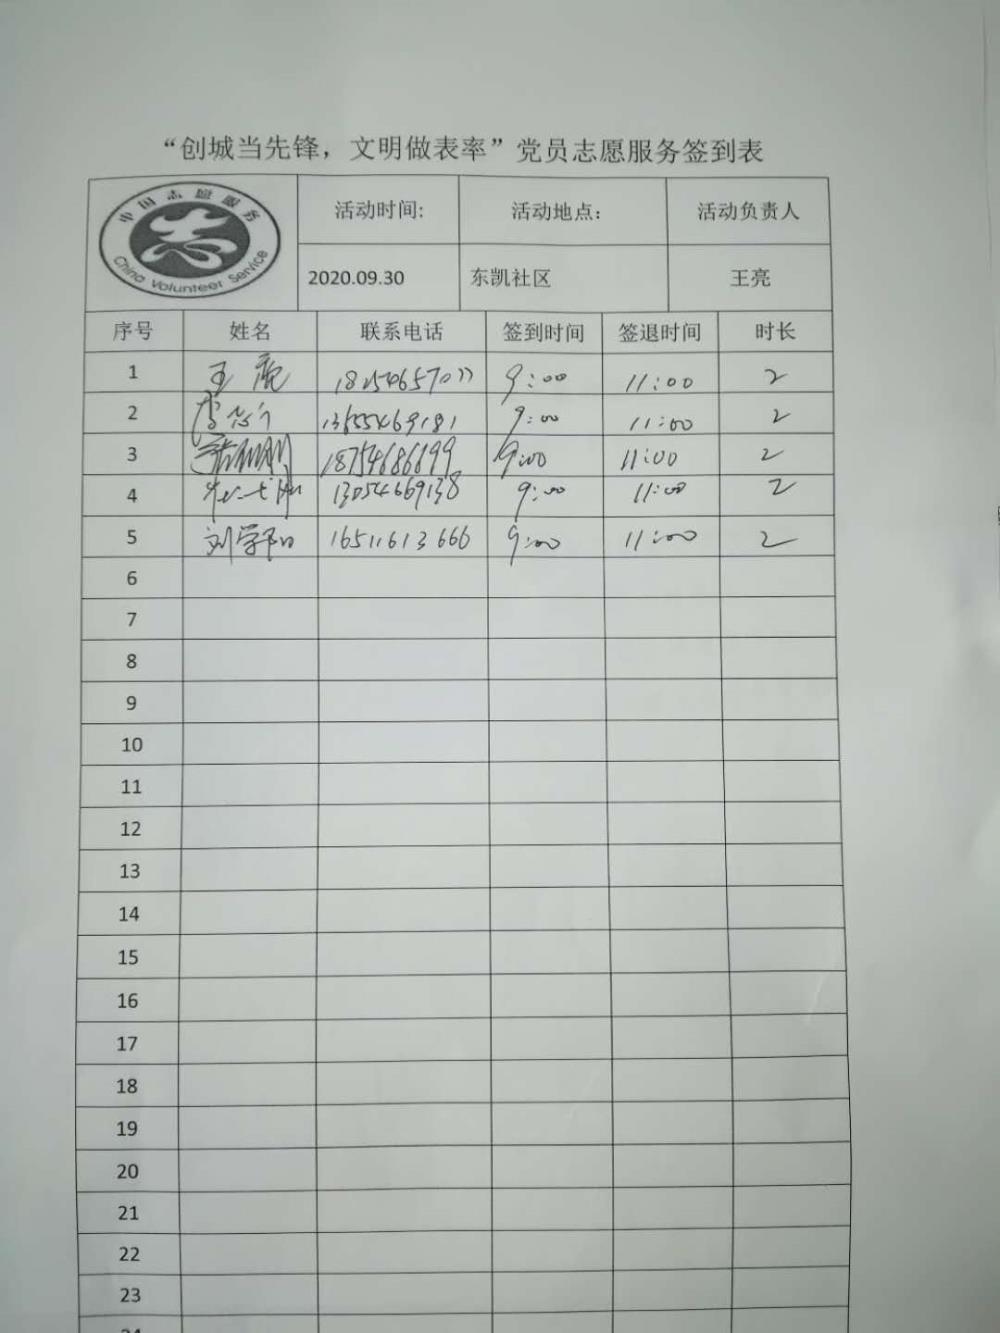 “创城当先锋，文明做表率”党员志愿服务签到表
中国志愿服务
China Volunteer Service
活动时间: 活动地点: 活动负责人
2020.09.30 东凯社区 王亮
序号 姓名 联系电话 签到时间 签退时间 时长
1 王 9:00 11:00 2
2 13655469181 9:00 11:00 2
3 18754686699 9:00 11:00 2
4 13054669138 9:00 11:00 2
5 刘学阳 16511613666 9:00 11:00 2
6
7
8
9
10
11
12
13
14
15
16
17
18
19
20
21
22
23
24